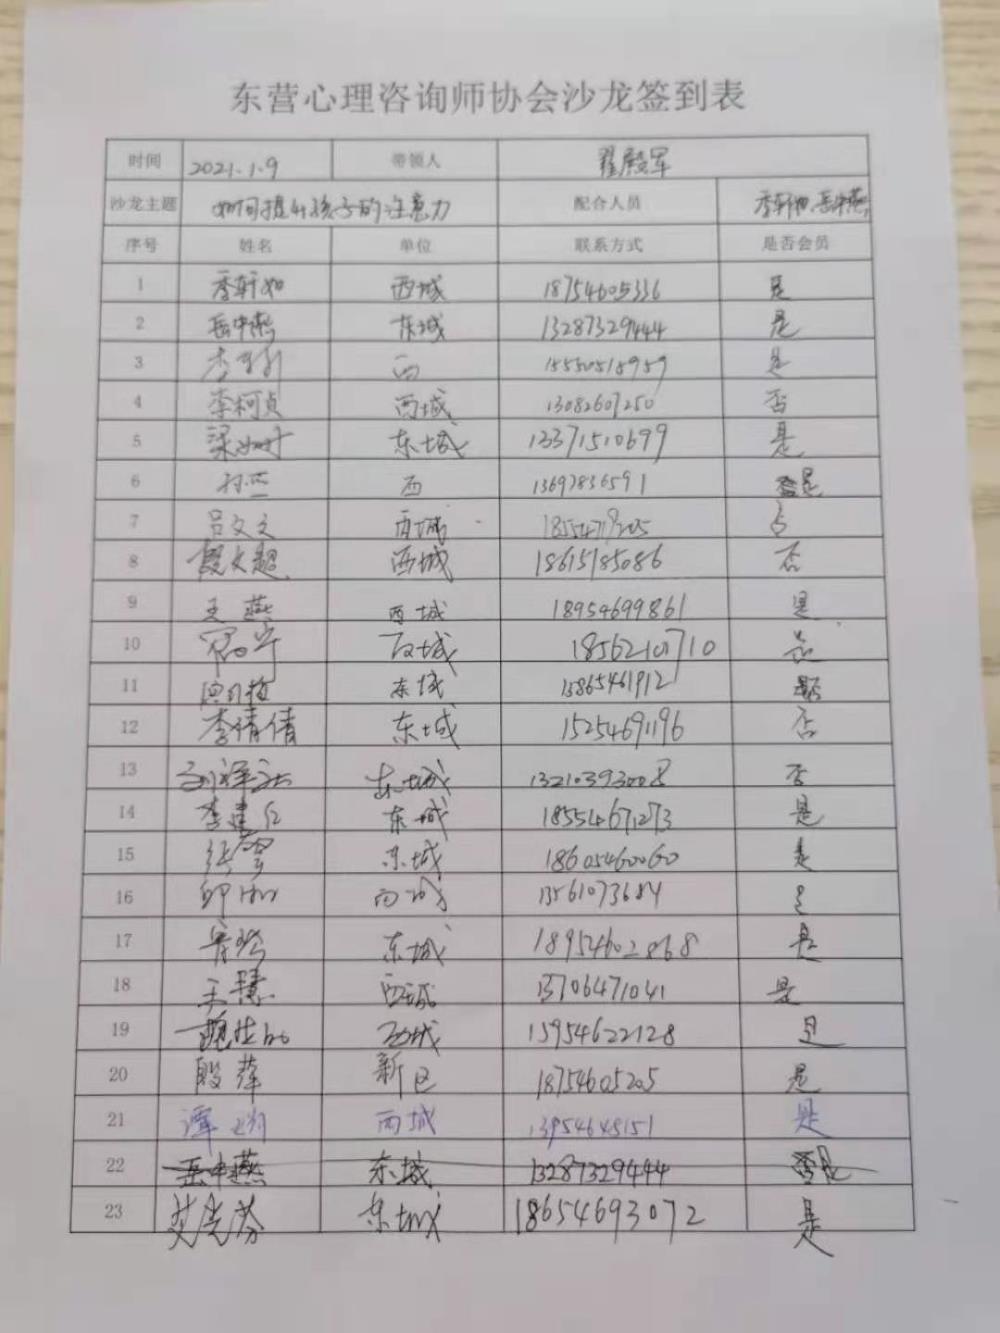 东营心理咨询师协会沙龙签到表
时间 2021.1.9 带领人 翟殿军
沙龙主题 如何提升孩子的注意力 配合人员 季轩如、岳中燕
序号 姓名 单位 联系方式 是否会员
1 季轩如 西城 18754605336 是
2 岳中燕 东城 13287329444 是
3 西 15550515959 是
4 李柯贞 西城 13082607250 否
5 梁 东城 13371510699 是
6 西 13697836591 是
7 吕文文 西城 18554719205 否
8 超 西城 18615185086 否
9 王燕 西城 18954699861 是
10 西城 18562101710 是
11 东城 13865461912
12 李倩倩 东城 15254691196 否
13 东城 13210393008 否
14 李建 东城 18554671273 是
15 张 东城 18605460060 是
16 西城 13561073684 是
17 东城 18954602868 是
18 王慧 西城 13706471041 是
19 西城 15954622128 是
20 殷萍 新区 18754605205 是
21 谭 西城 13954648151 是
22 岳中燕 东城 13287329444 是
23 艾光芬 东城 18654693072 是